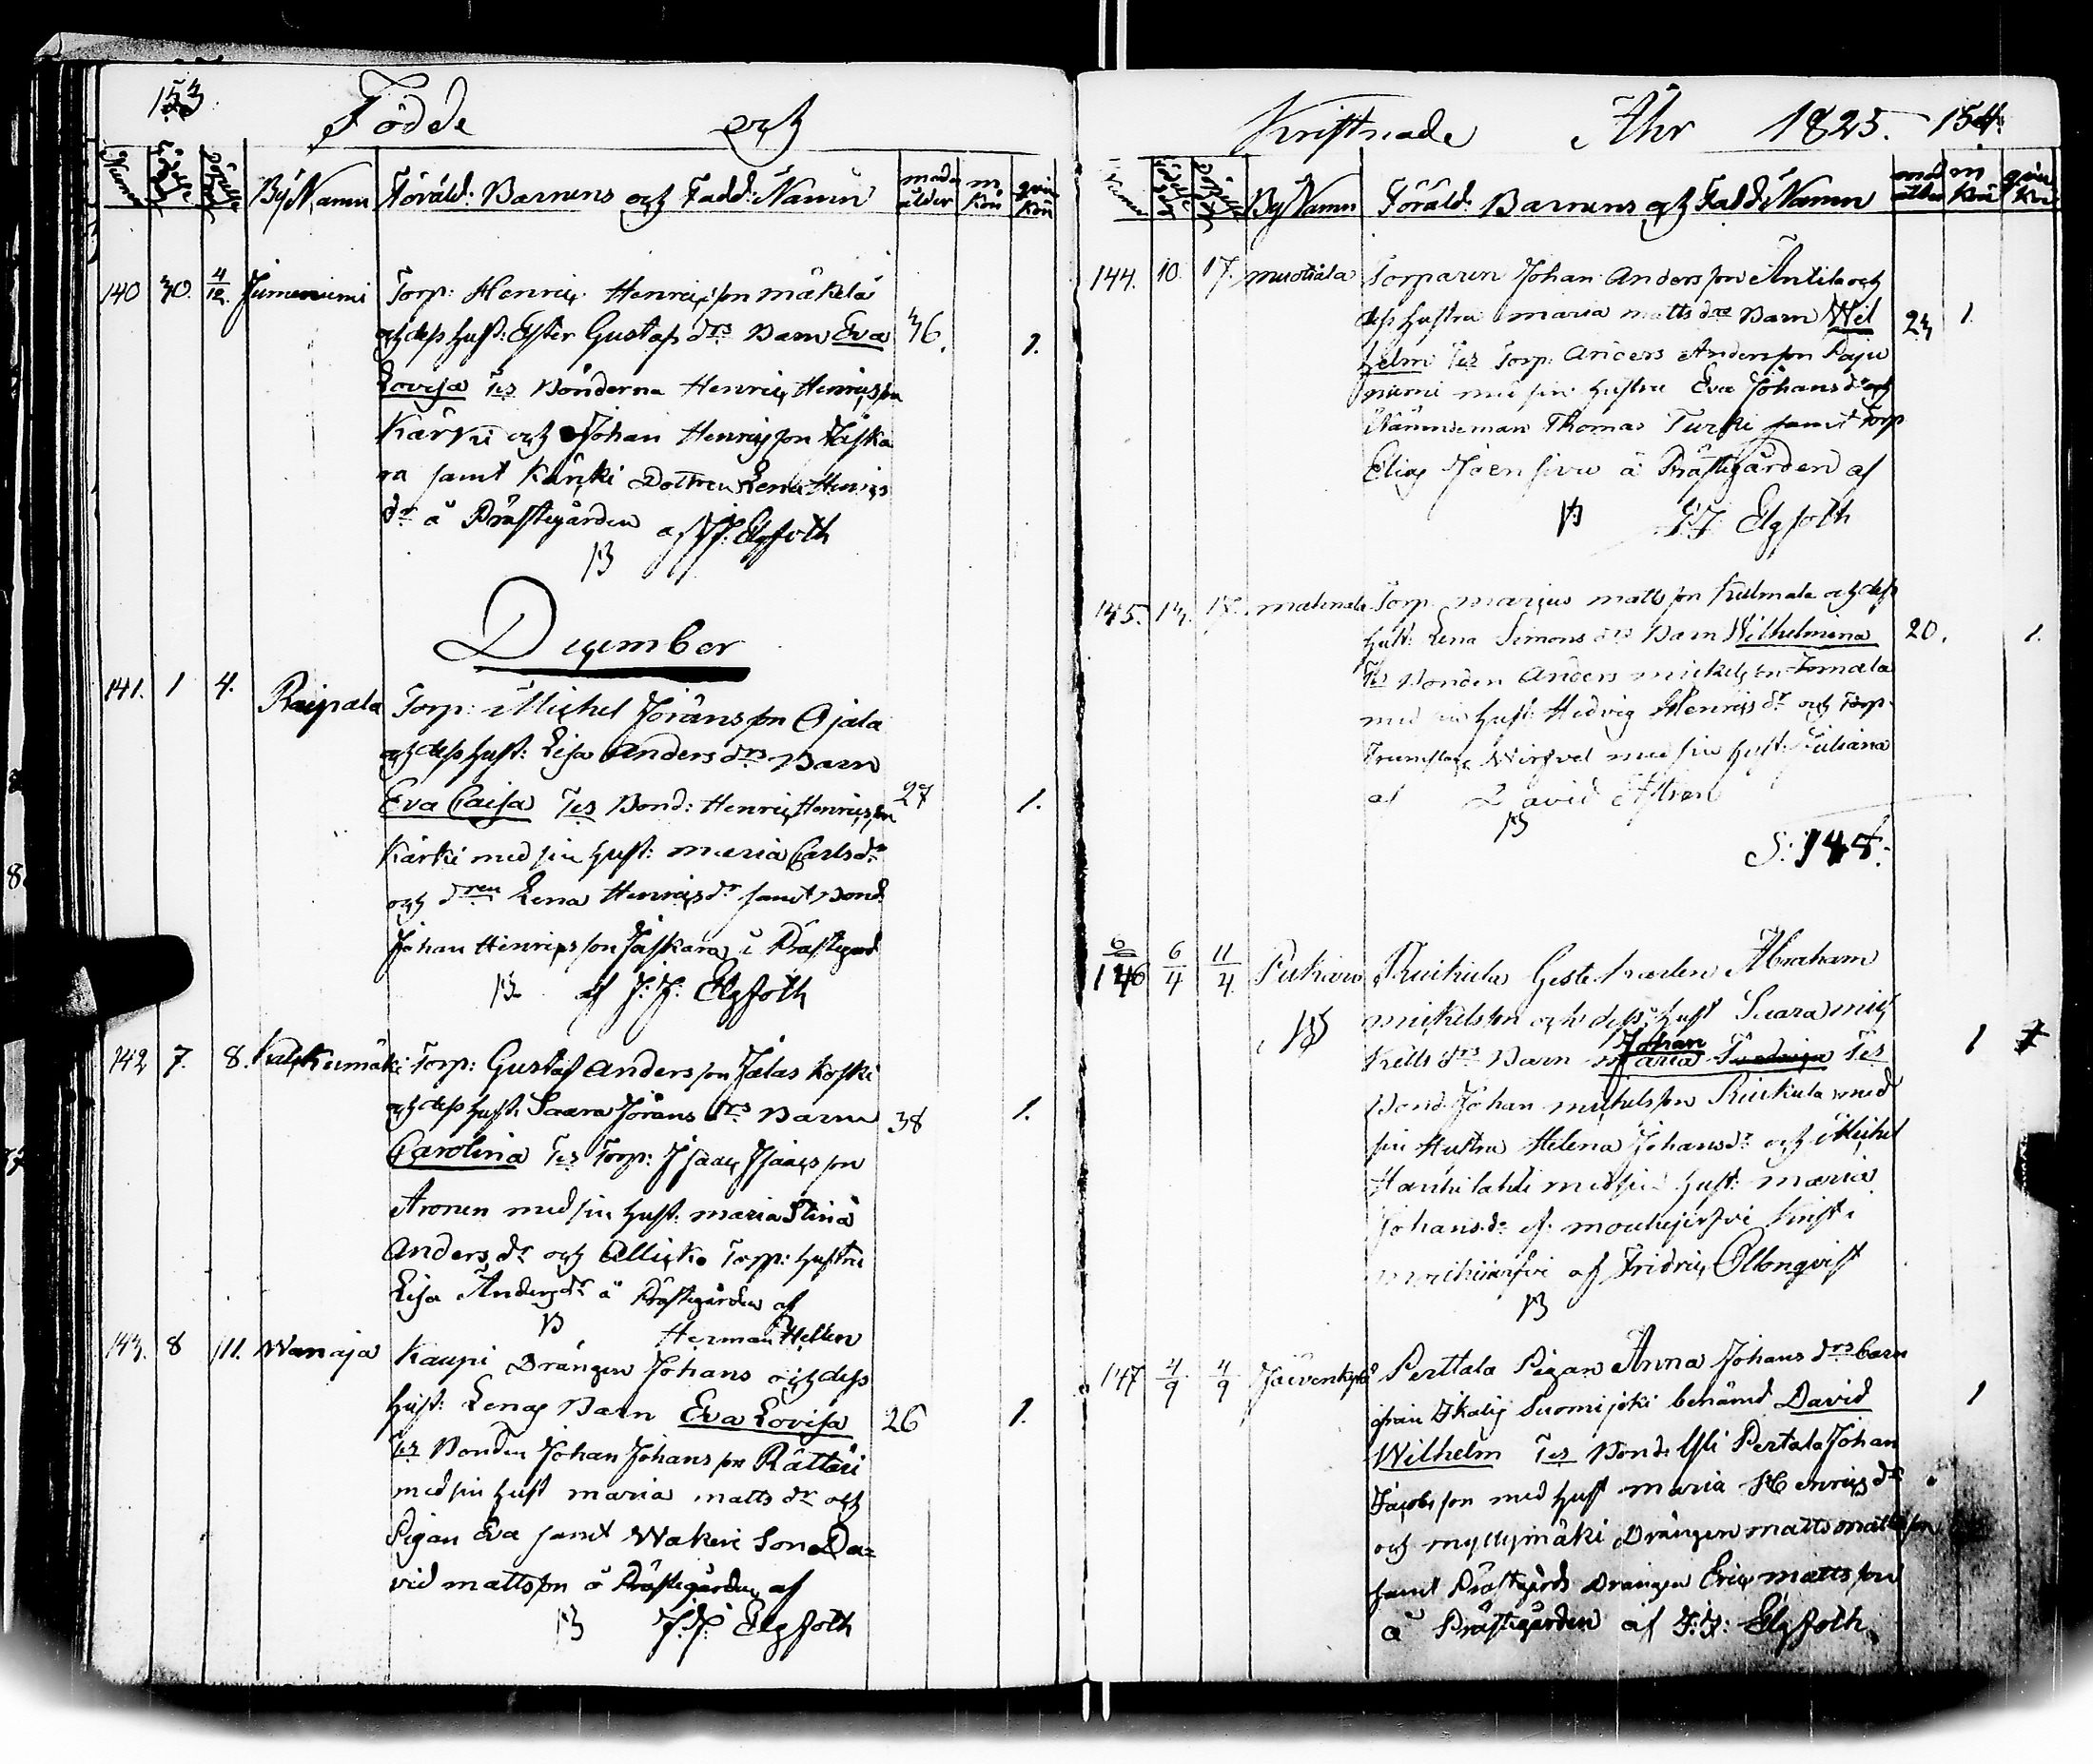 153.
Födde och
Numer Födelse Döpelse By Namn Föräld: Barnens och Fadd: Namn mod: ålder m. Kön qvin Kön
140 30. 4/12. Jumeniemi Torp: Henric Henricsson Mäkelä
och dess Hust: Ester Gustafs drs Barn Eva 36. 1.
Lovisa Tes Bönderna Henric Henricsson
Kärki och Johan Henricsson Jäska
ra samt Kärki Dottren Lena Henrics
dr å Prästegården af J.J. Elgfoth
December
141. 1 4. Raipala Torp: Michel Jöransson Ojala
och dess Hust: Lisa Anders drs Barn
Eva Caisa Tes Bond: Henric Henricsson 27 1.
Kärki med sin Hust: Maria Carlsdr
och dren Lena Henricsdr samt Bond
Johan Henricsson Jäskara i Prästegård
af J.J. Elgfoth
142 7. 8. Torp: Gustaf Andersson Jalaskoski
och dess Hust: Saara Jörans drs Barn 38 1.
Carolina Tes Torp: Isaac Isaacsson
Aronen med sin Hust: Maria Stina
Anders dr och Allicko Torp: Hustru
Lisa Andersdr å Prästegården af
Herman Hellen
143. 8 11. Wanaja Kaupi Drängen Johans och dess
Hust: Lenas Barn Eva Lovisa 26 1.
Tes Bonden Johan Johansson Rättäri
med sin Hust Maria Matts dr och
Pigan Eva samt Wakeri Son Da=
vid Mattsson å Prästegården af
J.J. Elgfoth
Kristnade Åhr 1825. 154.
By Namn Föräld: Barnens och Fadd: Namn mod ålder m Kön qvin Kön
144. 10. 17. Muotiala Torparen Johan Andersson Äntila och
dess Hustru Maria Matts drs Barn Wil 23 1.
helm Tes Torp: Anders Andersson Paju
niemi med sin Hustru Eva Johansdr och
Nämndeman Thomas Turki samt Torp
Elias Joensivu å Prästegården af
J.J. Elgfoth
145. 13. 18. Torp. Marcus Mattsson Kulmala och dess
Hust: Lena Simons drs Barn Wilhelmina 20. 1.
Tes Bonden Anders Mickelsson
med sin Hust: Hedvig Henricsdr och Torp.
med sin Hust: Juliana
af David Aström
S: 148.
146 6/4 11/4 Ruikula Abraham
Mickelsson och dess Hust Saara Mic
kells drs Barn Johan Maria Tes 1
Bond: Johan Mickelsson Ruikula med
sin Hustru Helena Johansdr och Michel
Hanhilahti med sin Hust: Maria
Johansdr
af Fridric Ollonqvist
147 4/9 4/9 Perttala Pigan Anna Johans drs barn
från Ikalis Suomijoki benämd David 1
Wilhelm Tes Bond: Yli Pertala Johan
Jacobsson med Hust Maria Henricsdr
och Myllymäki Drängen Matts Mattsson
samt Prästgårds Drängen Eric Mattsson
å Prästegården af J:J: Elgfoth